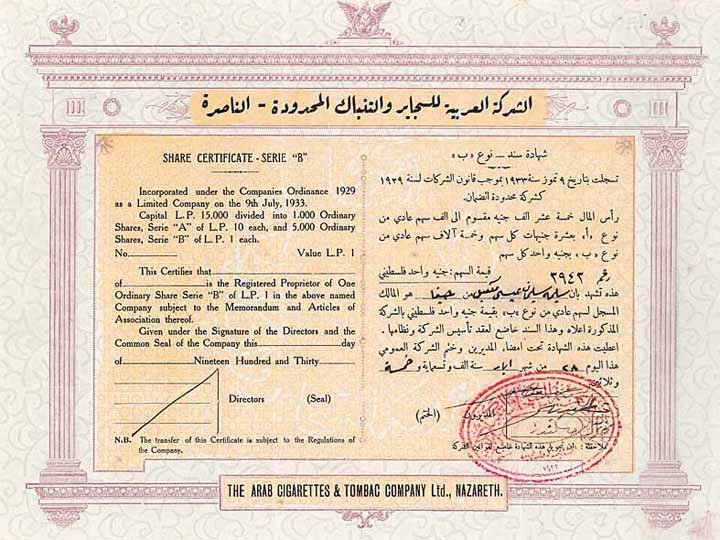 الشركة العربية للسجاير والتنباك المحدودة - الناصرة
SHARE CERTIFICATE - SERIE "B"
Incorporated under the Companies Ordinance 1929
as a Limited Company on the 9th July, 1933.
Capital L.P. 15.000 divided into 1.000 Ordinary
Shares, Serie "A" of L.P. 10 each, and 5.000 Ordinary
Shares, Serie "B" of L.P. 1 each.
No. Value L.P. 1
This Certifies that
of is the Registered Proprietor of One
Ordinary Share Serie "B" of L.P. 1 in the above named
Company subject to the Memorandum and Articles of
Association thereof.
Given under the Signature of the Directors and the
Common Seal of the Company this day
of Nineteen Hundred and Thirty
Directors (Seal)
N.B. The transfer of this Certificate is subject to the Regulations of
the Company.
شهادة سند - نوع «ب»
تسجلت بتاريخ ٩ تموز سنة ١٩٣٣ بموجب قانون الشركات لسنة ١٩٢٩
كشركة محدودة الضمان.
رأس المال خمسة عشر الف جنيه مقسوم الى الف سهم عادي من
نوع «أ» بعشرة جنيهات كل سهم وخمسة آلاف سهم عادي من
نوع «ب» بجنيه واحد كل سهم
رقم ٢٩٤٢ قيمة السهم: جنيه واحد فلسطيني
هذه تشهد بان من حيفا هو المالك
المسجل لسهم عادي من نوع «ب» بقيمة جنيه واحد فلسطيني بالشركة
المذكورة اعلاه وهذا السند خاضع لعقد تأسيس الشركة ونظامها.
اعطيت هذه الشهادة تحت امضاء المديرين وختم الشركة العمومي
هذا اليوم ٢٨ من شهر ايار سنة الف وتسعماية و خمسة
وثلاثين
المديرون (الختم)
ملاحظة: ان تحويل هذه الشهادة خاضع لقوانين الشركة
THE ARAB CIGARETTES & TOMBAC COMPANY Ltd., NAZARETH.